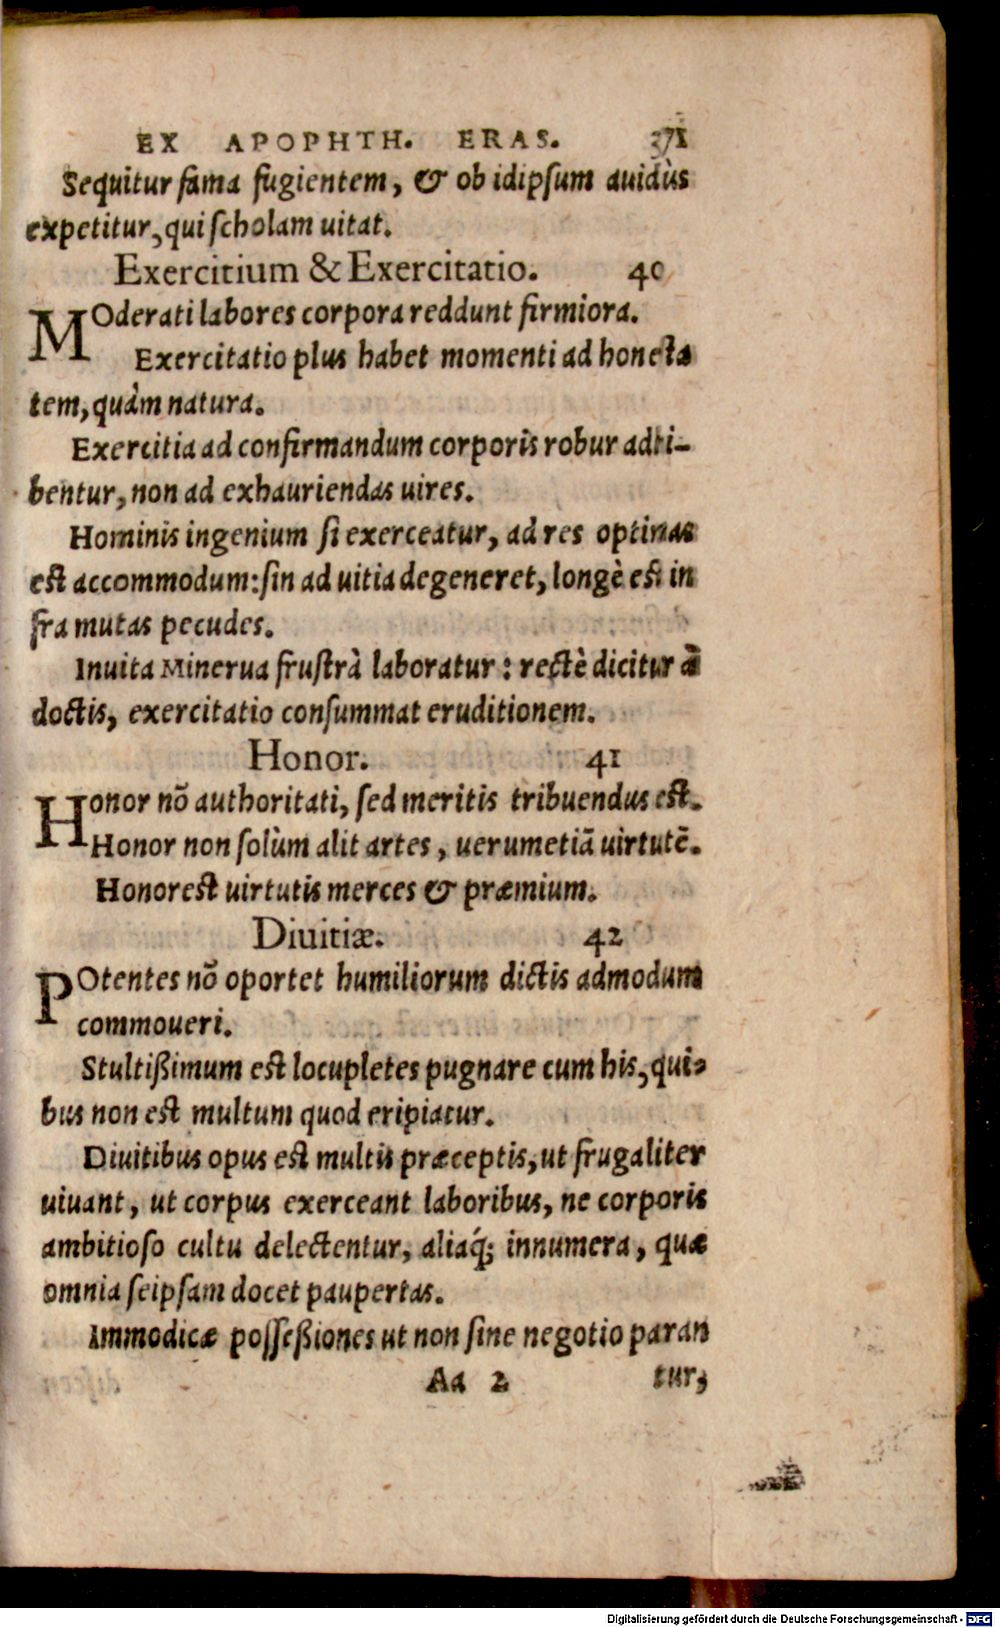 EX APOPHTH. ERAS. 371
Sequitur fama fugientem, & ob idipſum auidiùs
expetitur, qui ſcholam uitat.
Exercitium & Exercitatio. 40
MOderati labores corpora reddunt firmiora.
Exercitatio plus habet momenti ad honeſta
tem, quàm natura.
Exercitia ad confirmandum corporis robur adhi-
bentur, non ad exhauriendas uires.
Hominis ingenium ſi exerceatur, ad res optimas
eſt accommodum: ſin ad uitia degeneret, longè eſt in
fra mutas pecudes.
Inuita Minerua fruſtrà laboratur: rectè dicitur à
doctis, exercitatio conſummat eruditionem.
Honor. 41
Honor nõ authoritati, ſed meritis tribuendus eſt.
Honor non ſolùm alit artes, uerumetiã uirtutẽ.
Honor eſt uirtutis merces & præmium.
Diuitiæ. 42
POtentes nõ oportet humiliorum dictis admodum
commoueri.
Stultißimum eſt locupletes pugnare cum his, qui-
bus non eſt multum quod eripiatur.
Diuitibus opus eſt multis præceptis, ut frugaliter
uiuant, ut corpus exerceant laboribus, ne corporis
ambitioſo cultu delectentur, aliaq́; innumera, quæ
omnia ſeipſam docet paupertas.
Immodicæ poſſeßiones ut non ſine negotio paran
Aa 2 tur,
Digitalisierung gefördert durch die Deutsche Forschungsgemeinschaft - DFG